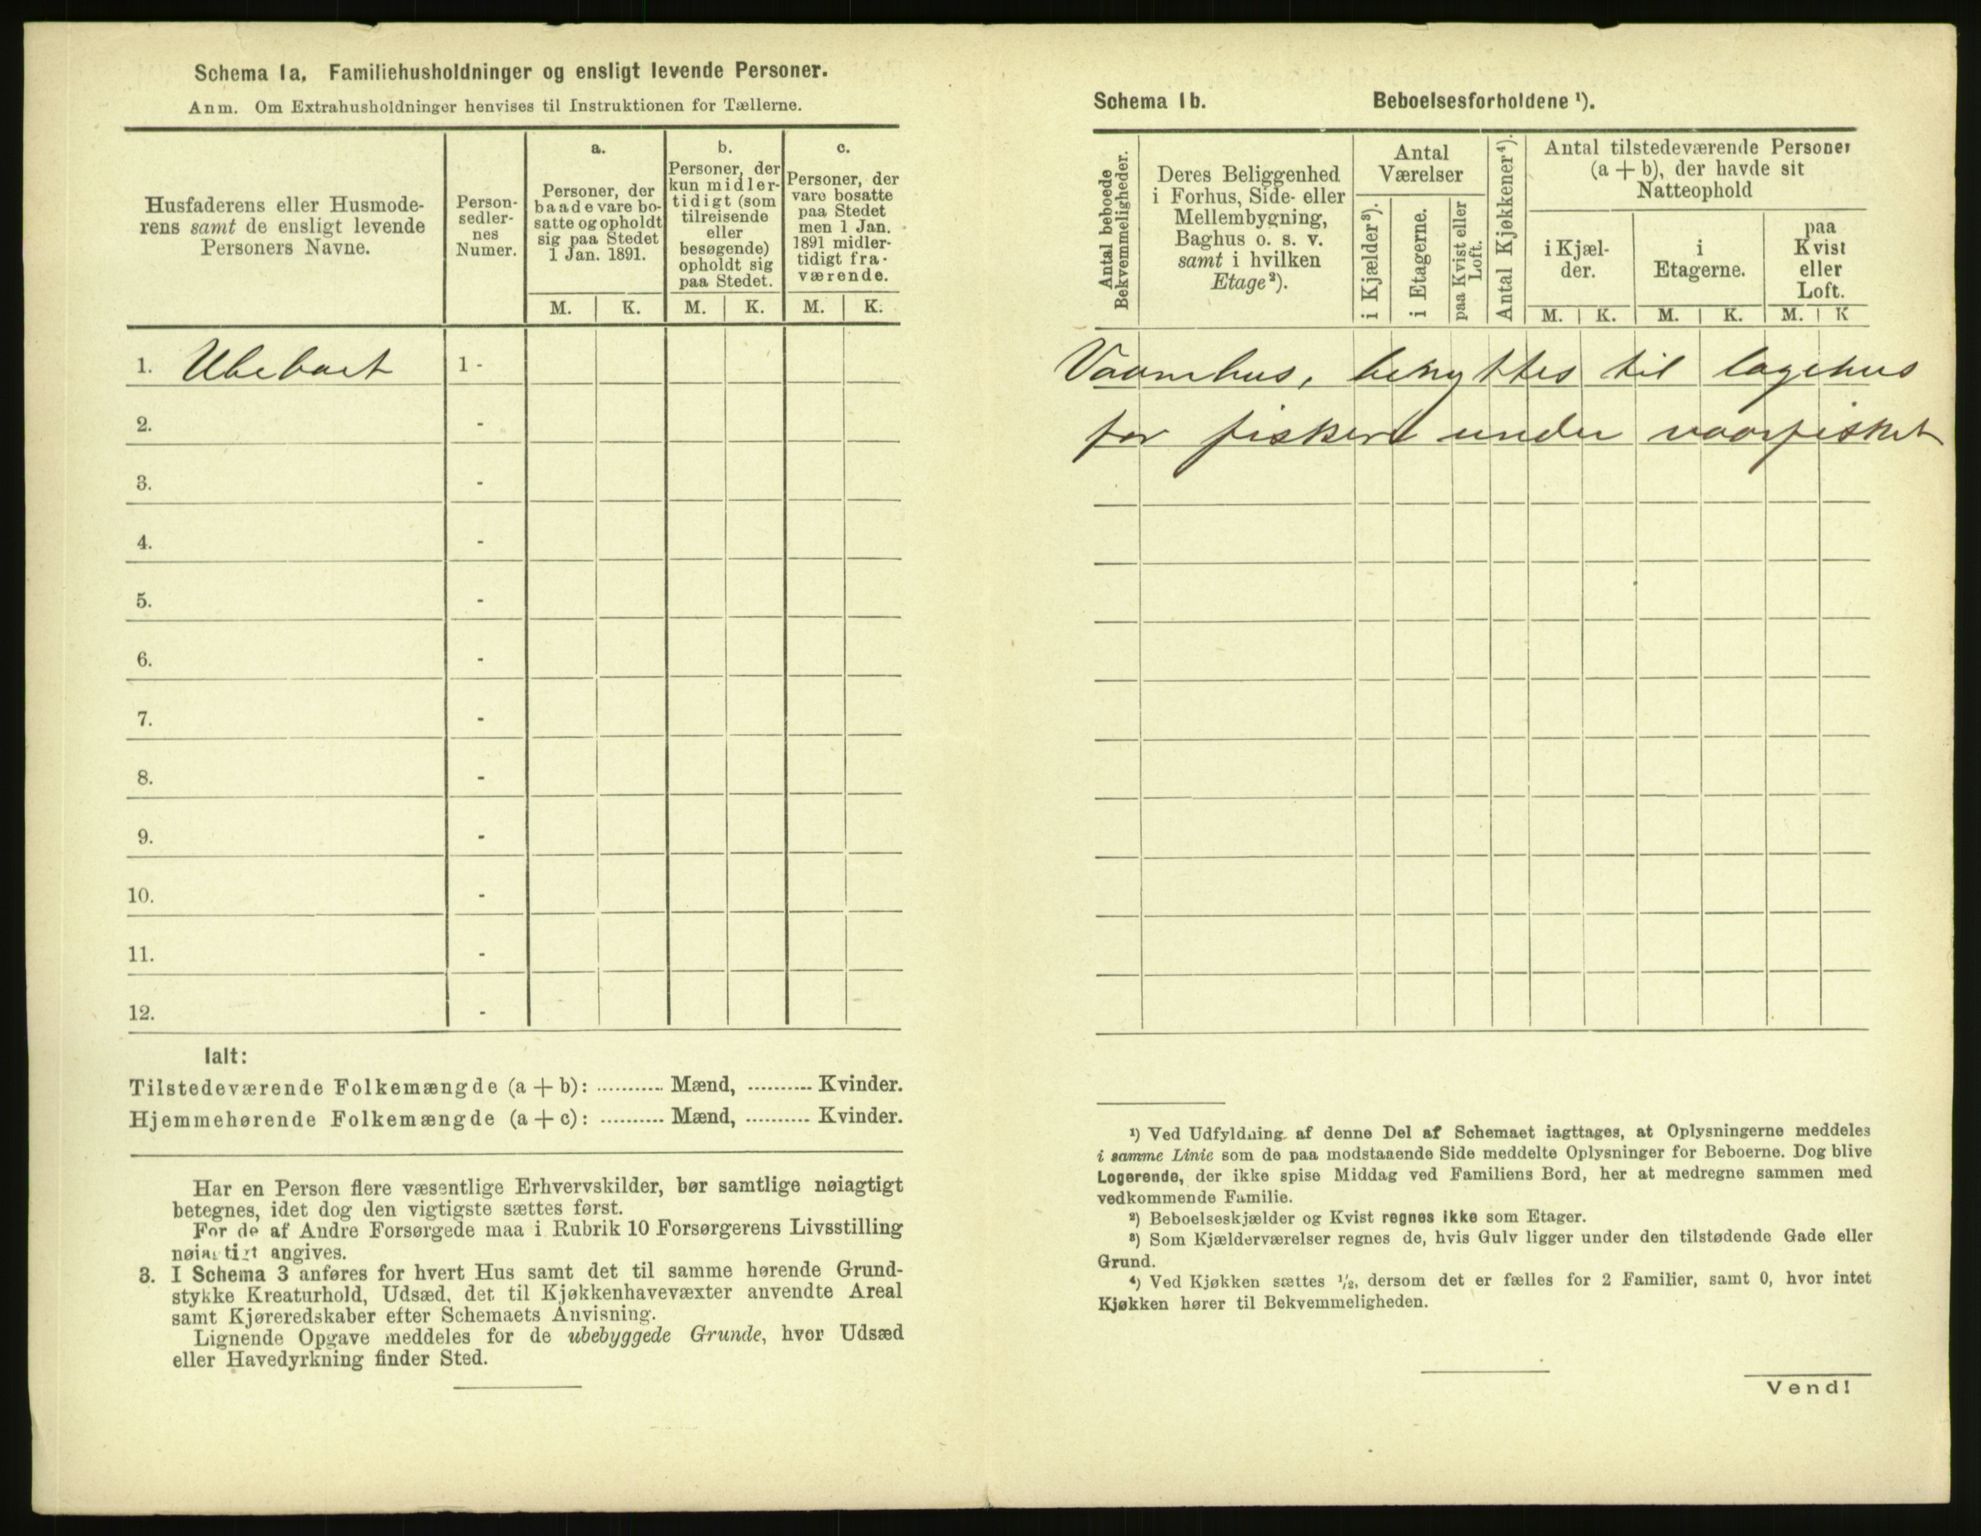 Schema 1a. Familiehusholdninger og ensligt levende Personer.
Anm. Om Extrahusholdninger henvises til Instruktionen for Tællerne.
Husfaderens eller Husmode-
rens samt de ensligt levende
Personers Navne.
Person-
sedler-
nes
Numer.
a.
Personer, der
baade vare bo-
satte og opholdt
sig paa Stedet
1 Jan. 1891.
b.
Personer, der
kun midler-
tidigt (som
tilreisende
eller
besøgende)
opholdt sig
paa Stedet.
c.
Personer, der
vare bosatte
paa Stedet
men 1 Jan.
1891 midler-
tidigt fra-
værende.
M. K. M. K. M. K.
1. Ubeboet 1 -
2. -
3. -
4. -
5. -
6. -
7. -
8. -
9. -
10. -
11. -
12. -
Ialt:
Tilstedeværende Folkemængde (a + b): ........... Mænd, .......... Kvinder.
Hjemmehørende Folkemængde (a + c): ........... Mænd, .......... Kvinder.
Har en Person flere væsentlige Erhvervskilder, bør samtlige nøiagtigt
betegnes, idet dog den vigtigste sættes først.
For de af Andre Forsørgede maa i Rubrik 10 Forsørgerens Livsstilling
nøiagtigt angives.
3. I Schema 3 anføres for hvert Hus samt det til samme hørende Grund-
stykke Kreaturhold, Udsæd, det til Kjøkkenhavevæxter anvendte Areal
samt Kjøreredskaber efter Schemaets Anvisning.
Lignende Opgave meddeles for de ubebyggede Grunde, hvor Udsæd
eller Havedyrkning finder Sted.
Schema 1b. Beboelsesforholdene ¹).
Antal beboede
Bekvemmeligheder.
Deres Beliggenhed
i Forhus, Side- eller
Mellembygning,
Baghus o. s. v.
samt i hvilken
Etage²).
Antal
Værelser
i Kjælder³).
i Etagerne.
paa Kvist eller
Loft.
Antal Kjøkkener⁴).
Antal tilstedeværende Personer
(a + b), der havde sit
Natteophold
i Kjæl-
der.
i
Etagerne.
paa
Kvist
eller
Loft.
M. K. M. K. M. K
Vaanhus, benyttes til logihus
for fiskere under vaarfisket
¹) Ved Udfyldning af denne Del af Schemaet iagttages, at Oplysningerne meddeles
i samme Linie som de paa modstaaende Side meddelte Oplysninger for Beboerne. Dog blive
Logerende, der ikke spise Middag ved Familiens Bord, her at medregne sammen med
vedkommende Familie.
²) Beboelseskjælder og Kvist regnes ikke som Etager.
³) Som Kjælderværelser regnes de, hvis Gulv ligger under den tilstødende Gade eller
Grund.
⁴) Ved Kjøkken sættes ½, dersom det er fælles for 2 Familier, samt 0, hvor intet
Kjøkken hører til Bekvemmeligheden.
Vend!